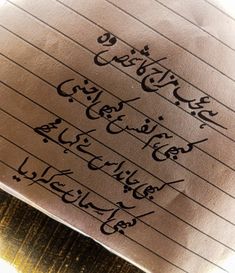 ہے عجب مزاج کا شخص وہ
کبھی ہم نفس کبھی اجنبی
کبھی چاند اس نے کہا مجھے
کبھی آسمان سے گرا دیا